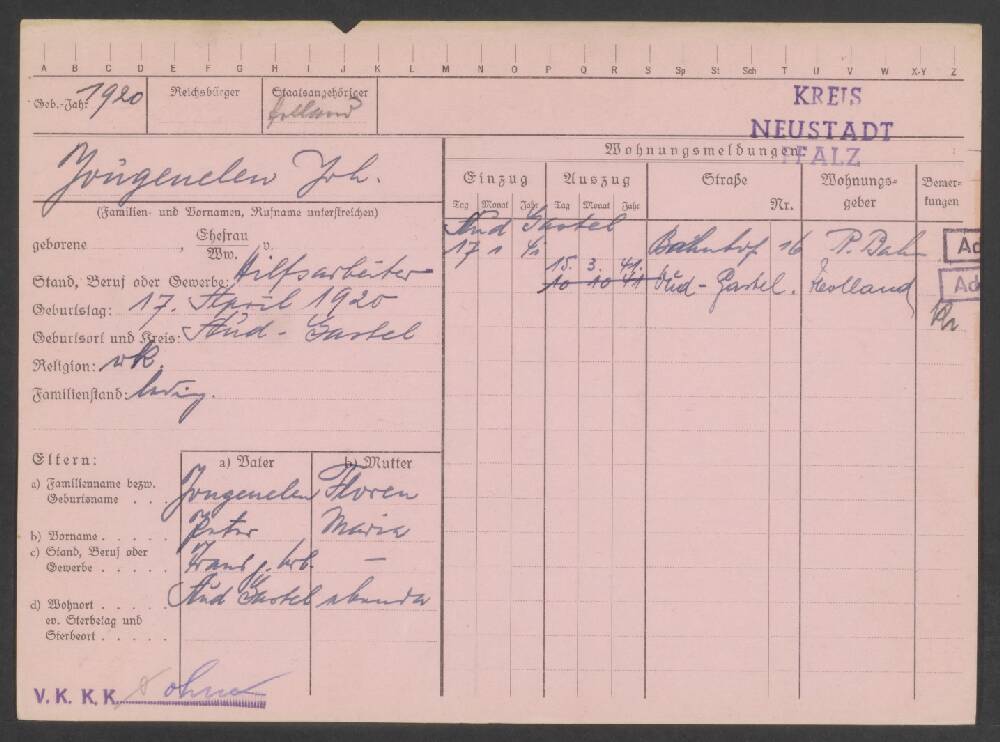 A B C D E F G H I J K L M N O P Q R S Sp St Sch T U V W X-Y Z
Geb.-Jahr 1920 Reichsbürger Staatsangehöriger Holland
KREIS
NEUSTADT
PFALZ
Jongenelen Joh.
(Familien- und Vornamen, Rufname unterstreichen)
geborene , Ehefrau v.
Ww.
Stand, Beruf oder Gewerbe: Hilfsarbeiter
Geburtstag: 17. April 1920
Geburtsort und Kreis: Aud - Gastel
Religion: rk.
Familienstand: ledig.
Wohnungsmeldungen
Einzug Auszug Straße Nr. Wohnungs-geber Bemer-kungen
Tag Monat Jahr Tag Monat Jahr
Aud Gastel
17 1 41 Bahnhof 16 P. Bahn
15. 3. 41.
10 10 41 Aud - Gastel. Holland
Eltern: a) Vater b) Mutter
a) Familienname bezw. Geburtsname . . . Jongenelen Floren
b) Vorname . . . . . Peter Maria
c) Stand, Beruf oder Gewerbe . . . . . –
d) Wohnort . . . . . Aud Gastel ebenda
ev. Sterbetag und
Sterbeort . . . . .
V. K. K. K. ohne